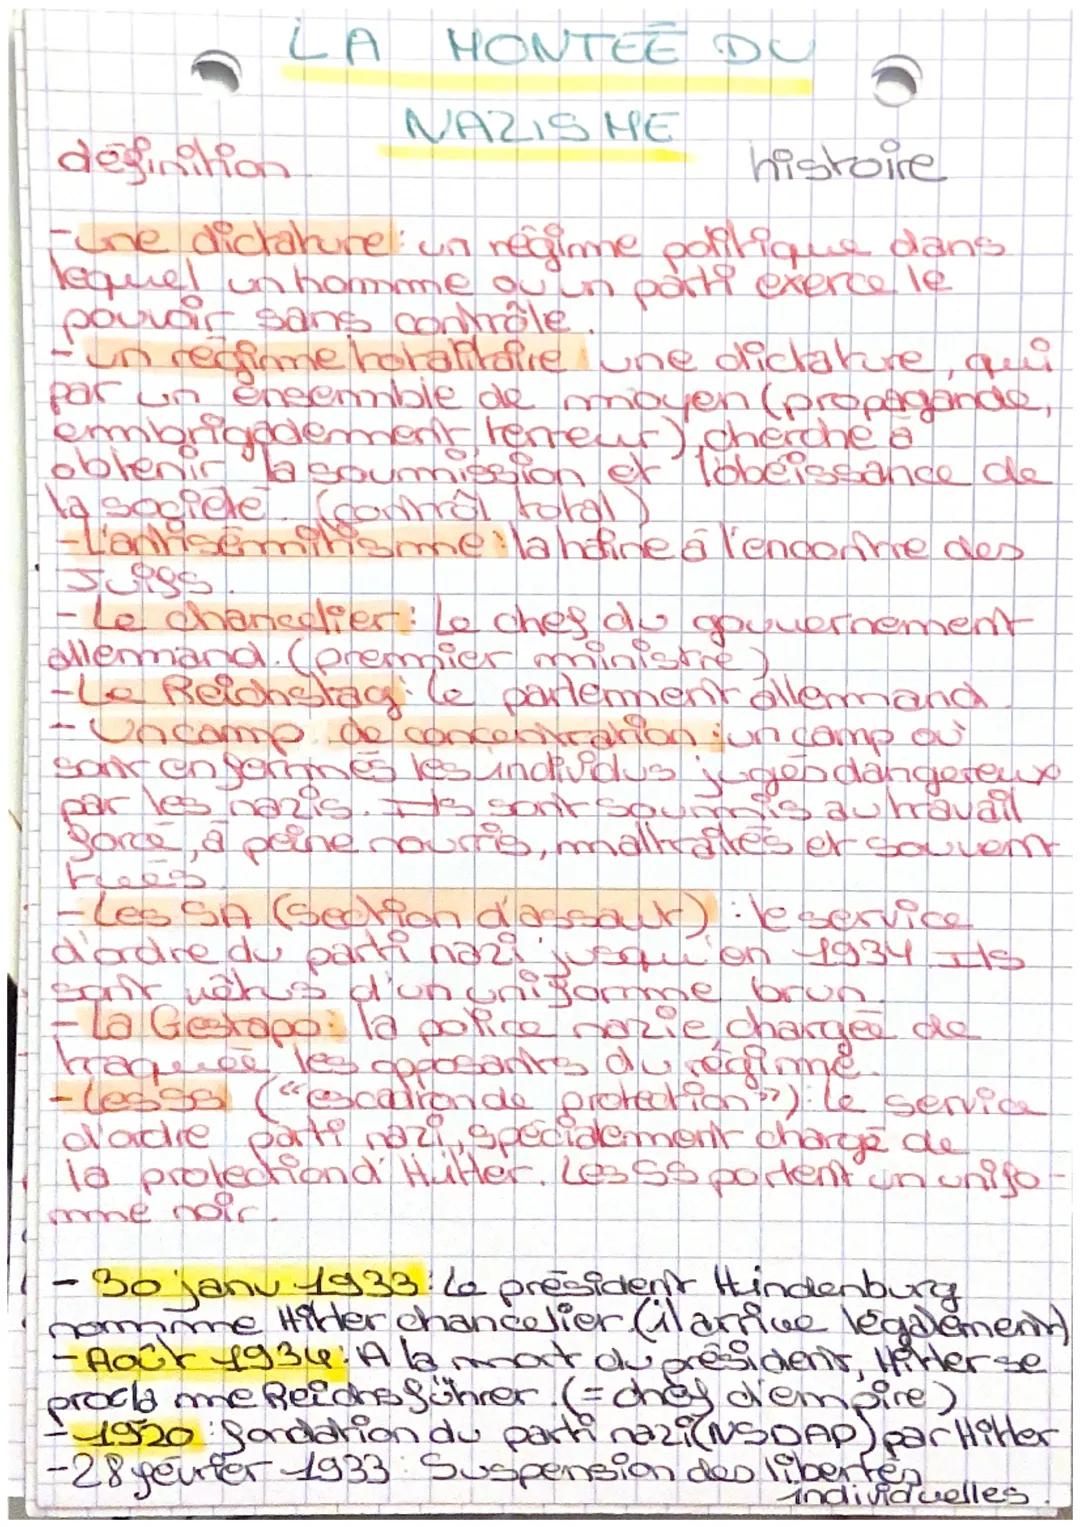 LA MONTEÉ DU
NAZISME
définition
histoire
- une dictature : un régime politique dans
lequel un homme ou un parti exerce le
pouvoir sans contrôle.
- un régime totalitaire une dictature, qui
par un ensemble de moyen (propagande,
embrigademment, terreur), cherche à
obtenir la soumission et l'obéissance de
la société. (contrôl total)
- L'antisémitisme : la haine à l'encontre des
Juifs.
- Le chancelier : Le chef du gouvernement
allemand. (premier ministre)
- Le Reichstag : le parlement allemand.
- Un camp de concentration : un camp où
sont enfermés les individus jugés dangereux
par les nazis. Ils sont soumis au travail
forcé, à peine nourris, maltraités et souvent
tués.
- Les SA (Section d'assaut) : le service
d'ordre du parti nazi jusqu'en 1934 Ils
sont vêtus d'un uniforme brun.
- La Gestapo : la police nazie, chargée de
traquée les opposants du régime.
- Les SS ("escadron de protection") : Le service
d'ordre parti nazi, spécialement chargé de
la protection d'Hitler. Les SS portent un unifo-
rme noir.
- 30 janv 1933 : Le président Hindenburg
nomme Hitler chancelier. (il arrive légalement)
- Août 1934 : A la mort du président, Hitler se
proclame Reichsführer. (= chef d'empire)
- 1920 : fondation du parti nazi (NSDAP) par Hitler
- 28 février 1933 : Suspension des libertés
individuelles.